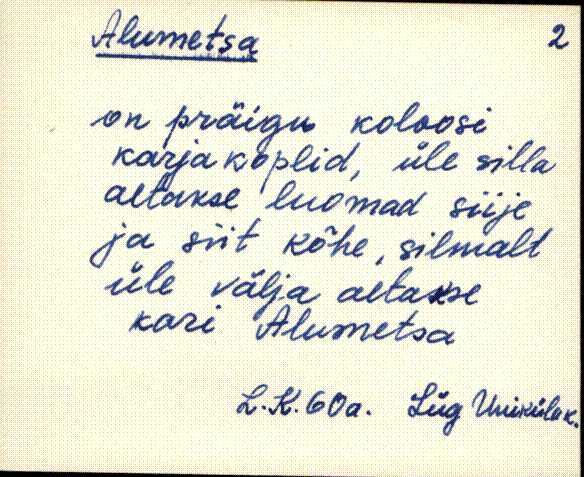 Alumetsa 2
on präigu koloosi
karjakoplid, üle silla
aetakse luomad siije
ja siit kõhe, silmalt
üle välja aetakse
kari Alumetsa
L.K. 60a. Lüg Unikülak.